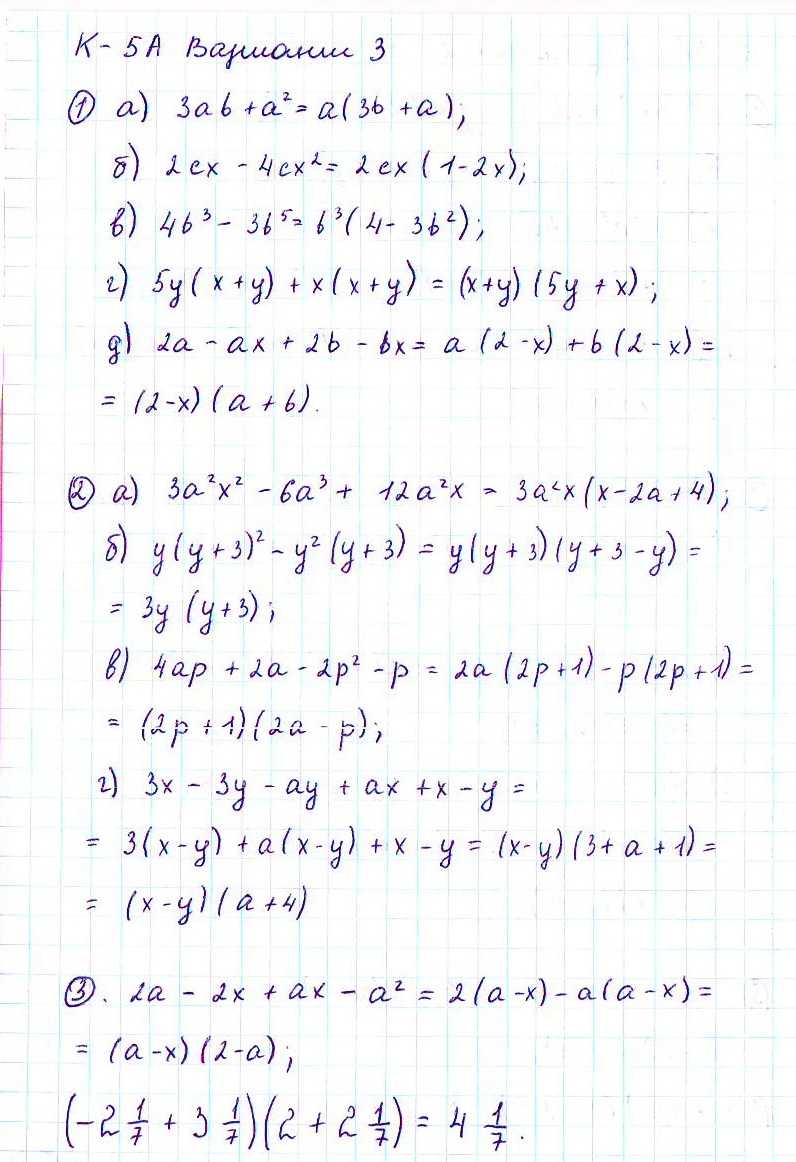 К- 5А Вариант 3
① а) 3ab + a² = a(3b + a);
б) 2cx - 4cx² = 2cx (1-2x);
в) 4b³ - 3b⁵ = b³(4- 3b²);
г) 5y( x+y) + x(x+y) = (x+y) (5y + x);
д) 2a - ax + 2b - bx = a (2-x) + b (2-x) =
= (2-x) (a + b).
② а) 3a²x² - 6a³ + 12a²x = 3a²x(x-2a+4);
б) y(y+3)² - y² (y+3) = y(y+3)(y+3-y) =
= 3y (y+3);
в) 4ap + 2a - 2p² - p = 2a (2p+1) - p(2p+1) =
= (2p+1)(2a - p);
г) 3x - 3y - ay + ax + x - y =
= 3(x-y) + a(x-y) + x - y = (x-y)(3+ a + 1) =
= (x-y) (a+4)
③. 2a - 2x + ax - a² = 2(a-x) - a(a-x) =
= (a-x) (2-a);
(-2 1/7 + 3 1/7)(2 + 2 1/7) = 4 1/7.